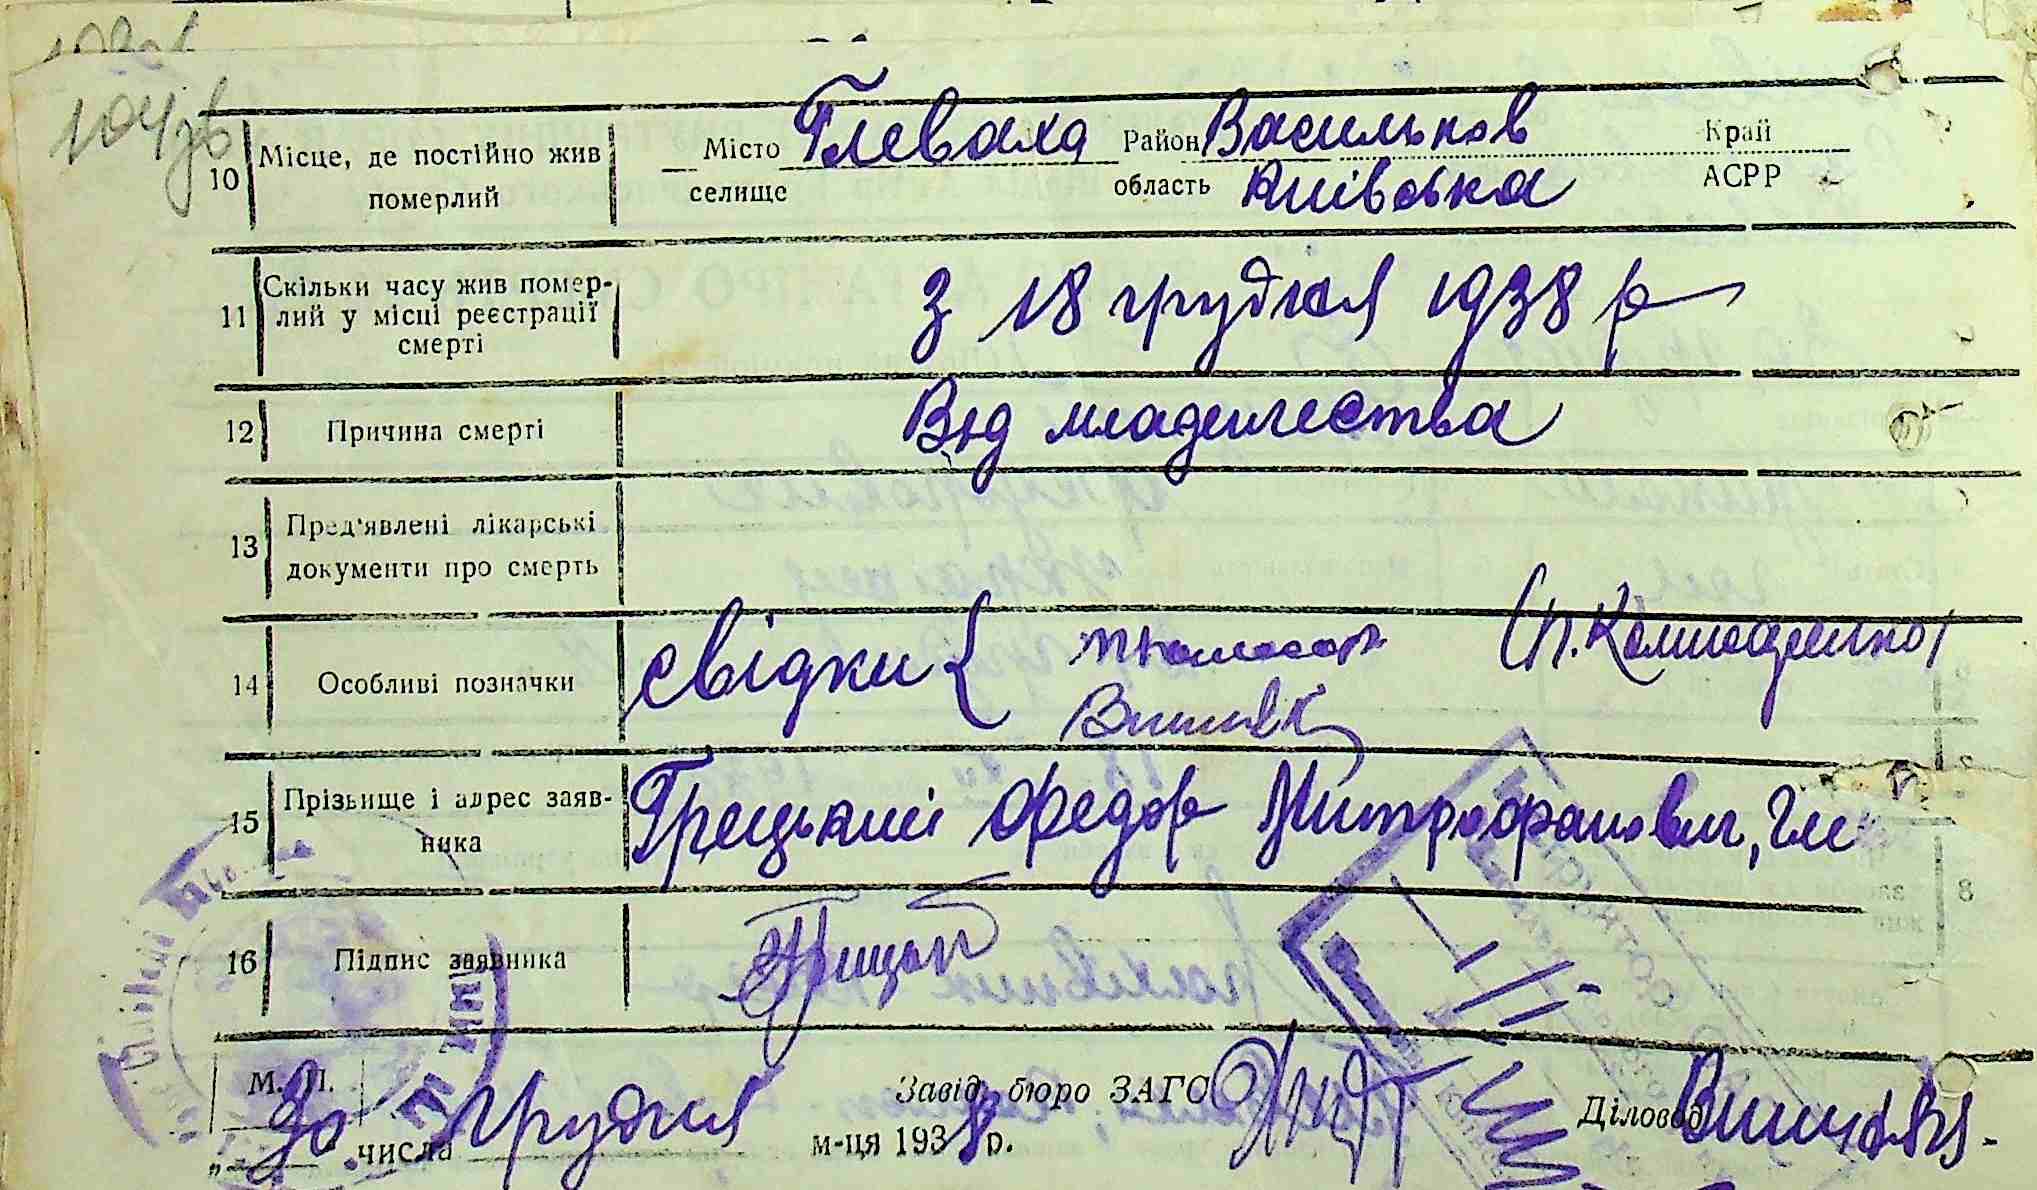 104зв
10 Місце, де постійно жив померлий Місто селище Глеваха Район Васильков область Київська Край АСРР
11 Скільки часу жив помер-
лий у місці реєстрації
смерті
З 18 грудня 1938 р
12 Причина смерті Від младенчества
13 Пред'явлені лікарські
документи про смерть
14 Особливі позначки свідки {
15 Прізвище і адрес заяв-
ника
Грецький Федор Митрофанович, Гле
16 Підпис заявника
М. П. Завід. бюро ЗАГС Діловод
„30 числа грудня м-ця 1938 р.
8